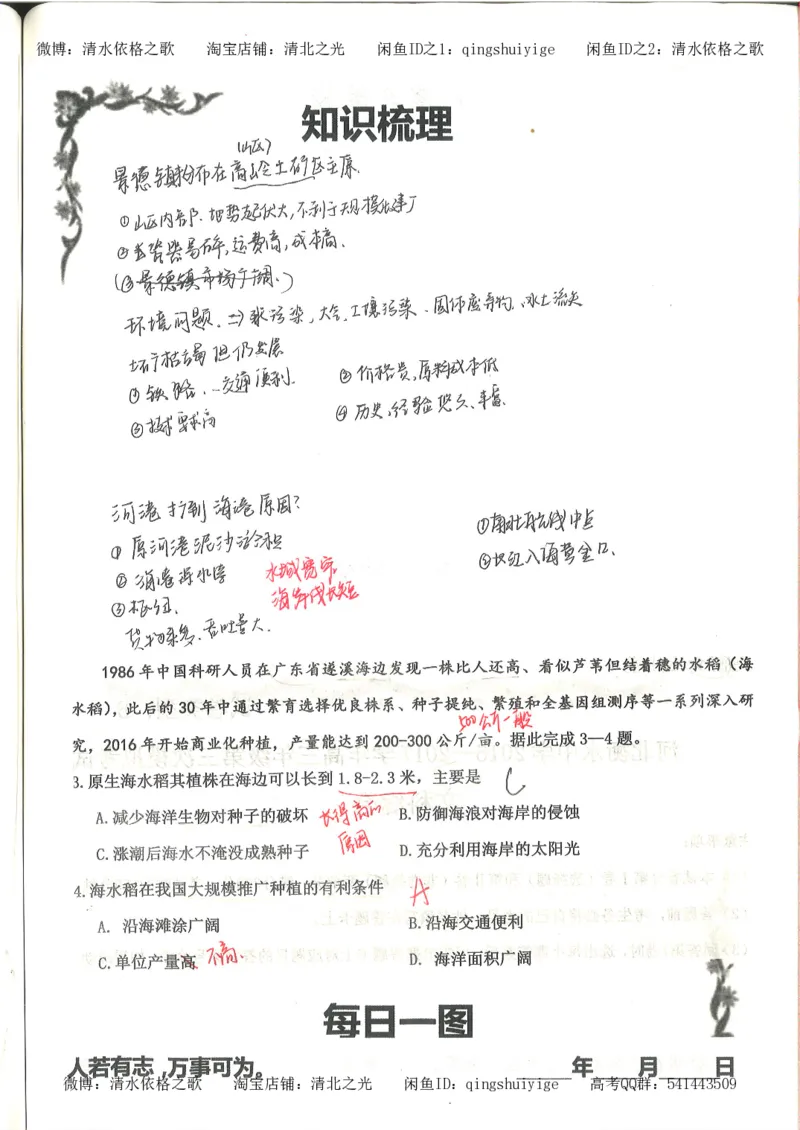 微博：清水依格之歌 淘宝店铺：清北之光 闲鱼ID之1：qingshuiyige 闲鱼ID之2：清水依格之歌
知识梳理
(山区)
景德镇粉布在高岭土矿区主原.
①山区内部、地势起伏大,不利于大规模批建厂
②去瓷器易碎,运费高,成本高.
(③景德镇市场广阔.)
环境问题. ⇒ 水污染,大气,土壤污染、固体废弃物、水土流失
矿枯竭但仍发展
①铁路、…交通便利. ②价格贵,原料成本低
③技术要求高 ④历史,经验悠久、丰富.
河港 到 海港原因?
①原河港泥沙淤积 ①南北航线中点
②海港深水港 水域宽宁 ②长江入海黄金口.
海岸线长短
③
货物系多、吞吐量大.
1986年中国科研人员在广东省遂溪海边发现一株比人还高、看似芦苇但结着穗的水稻（海
水稻），此后的30年中通过繁育选择优良株系、种子提纯、繁殖和全基因组测序等一系列深入研
500公斤一般
究，2016年开始商业化种植，产量能达到200-300公斤/亩。据此完成3—4题。
3.原生海水稻其植株在海边可以长到1.8-2.3米，主要是 C
A.减少海洋生物对种子的破坏 长得高的 B.防御海浪对海岸的侵蚀
原因
C.涨潮后海水不淹没成熟种子 D.充分利用海岸的太阳光
4.海水稻在我国大规模推广种植的有利条件 A
A. 沿海滩涂广阔 B.沿海交通便利
C.单位产量高 不高. D. 海洋面积广阔
每日一图
人若有志，万事可为。 ____年____月____日
微博：清水依格之歌 淘宝店铺：清北之光 闲鱼ID：qingshuiyige 高考QQ群：541443509